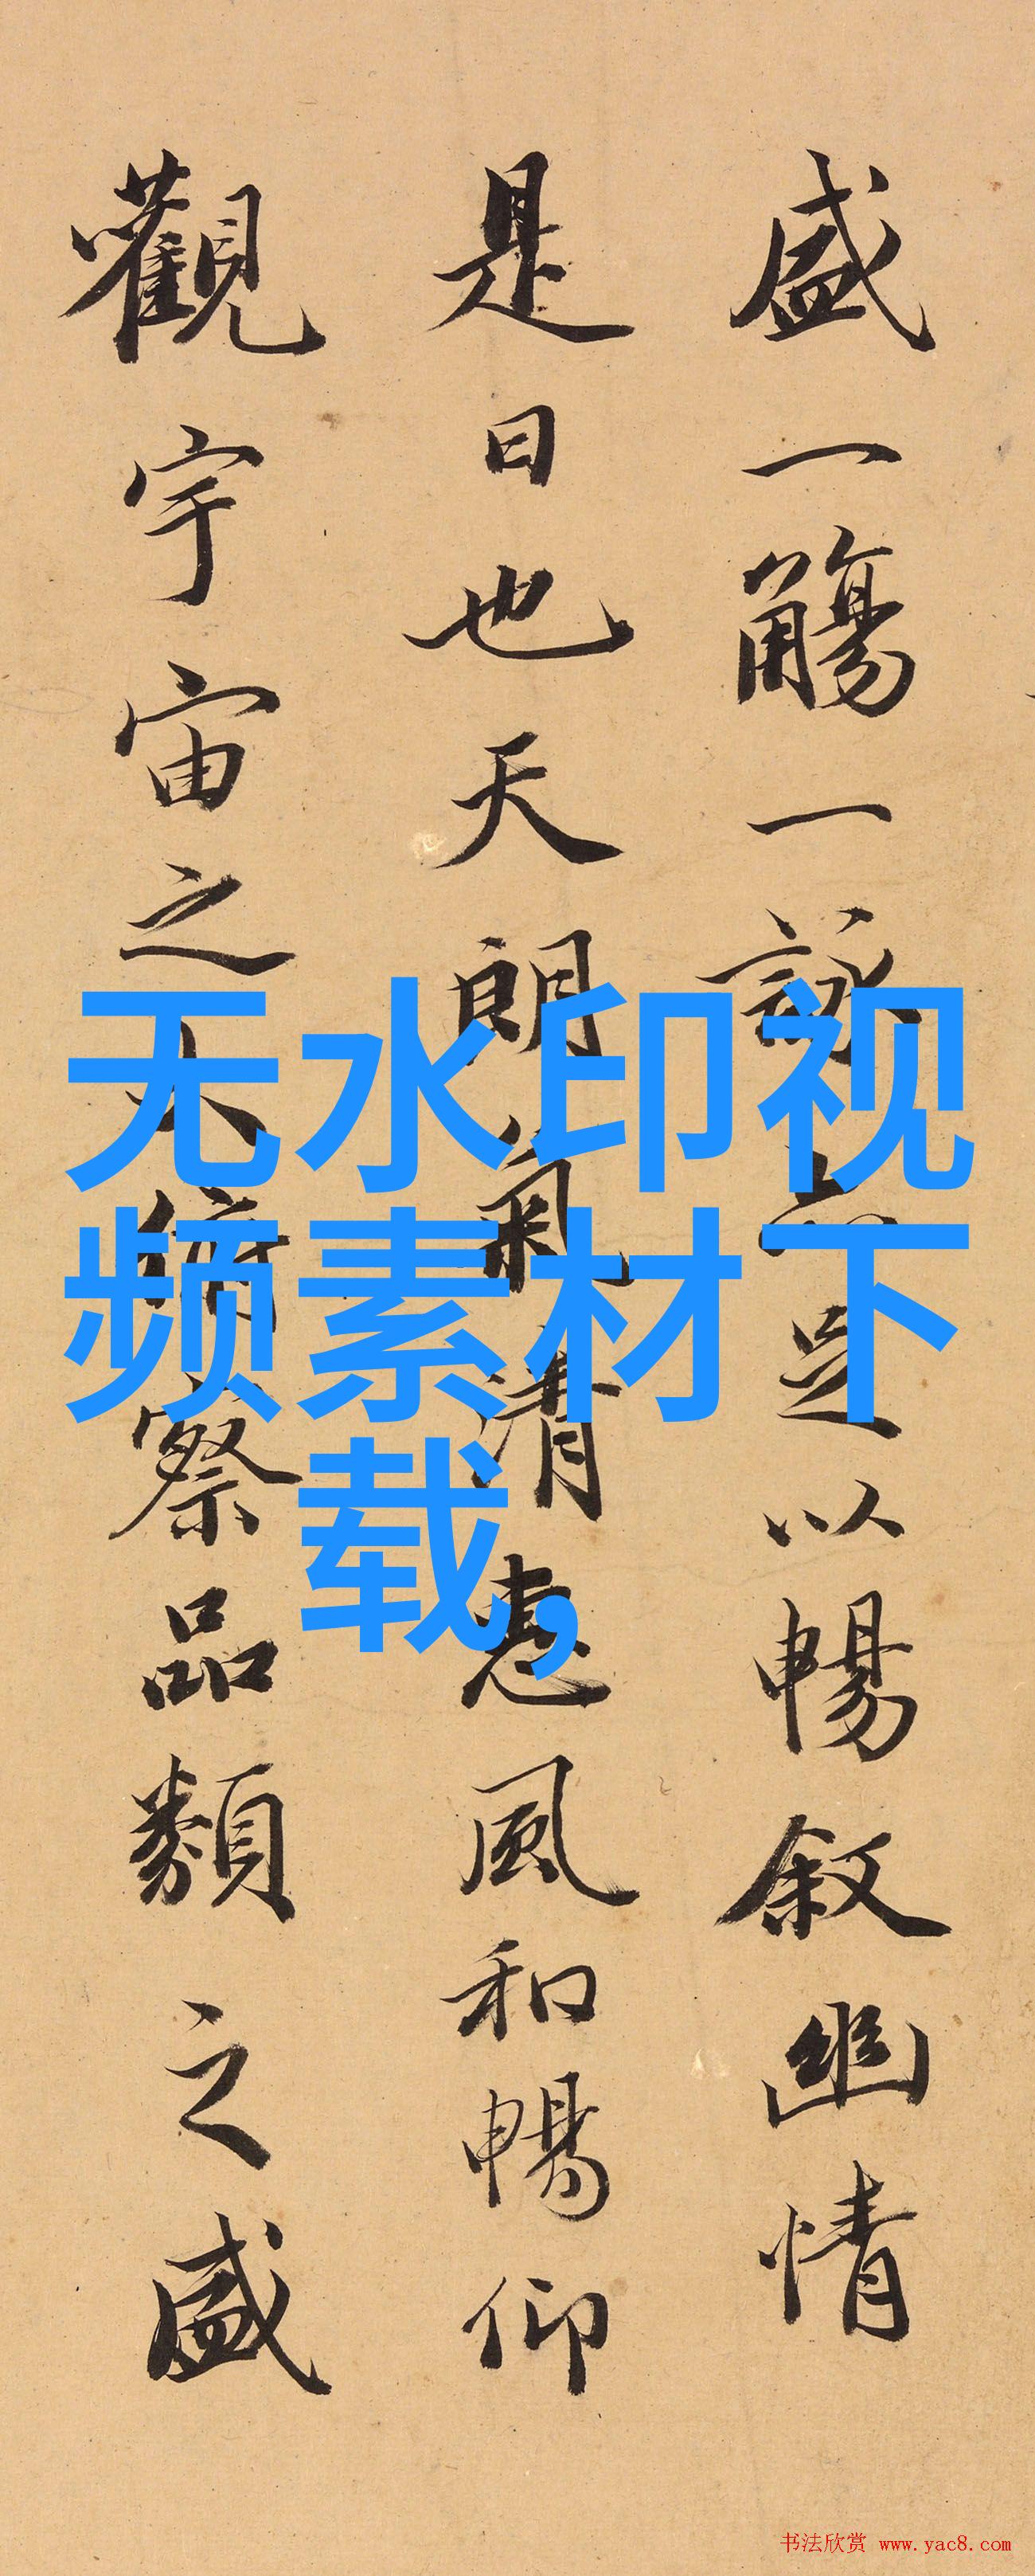 盛一觴一詠亦足以暢叙幽情
是日也天朗氣清惠風和暢仰
觀宇宙之大俯察品類之盛
无水印视
频素材下
载,
书法欣赏 www.yac8.com